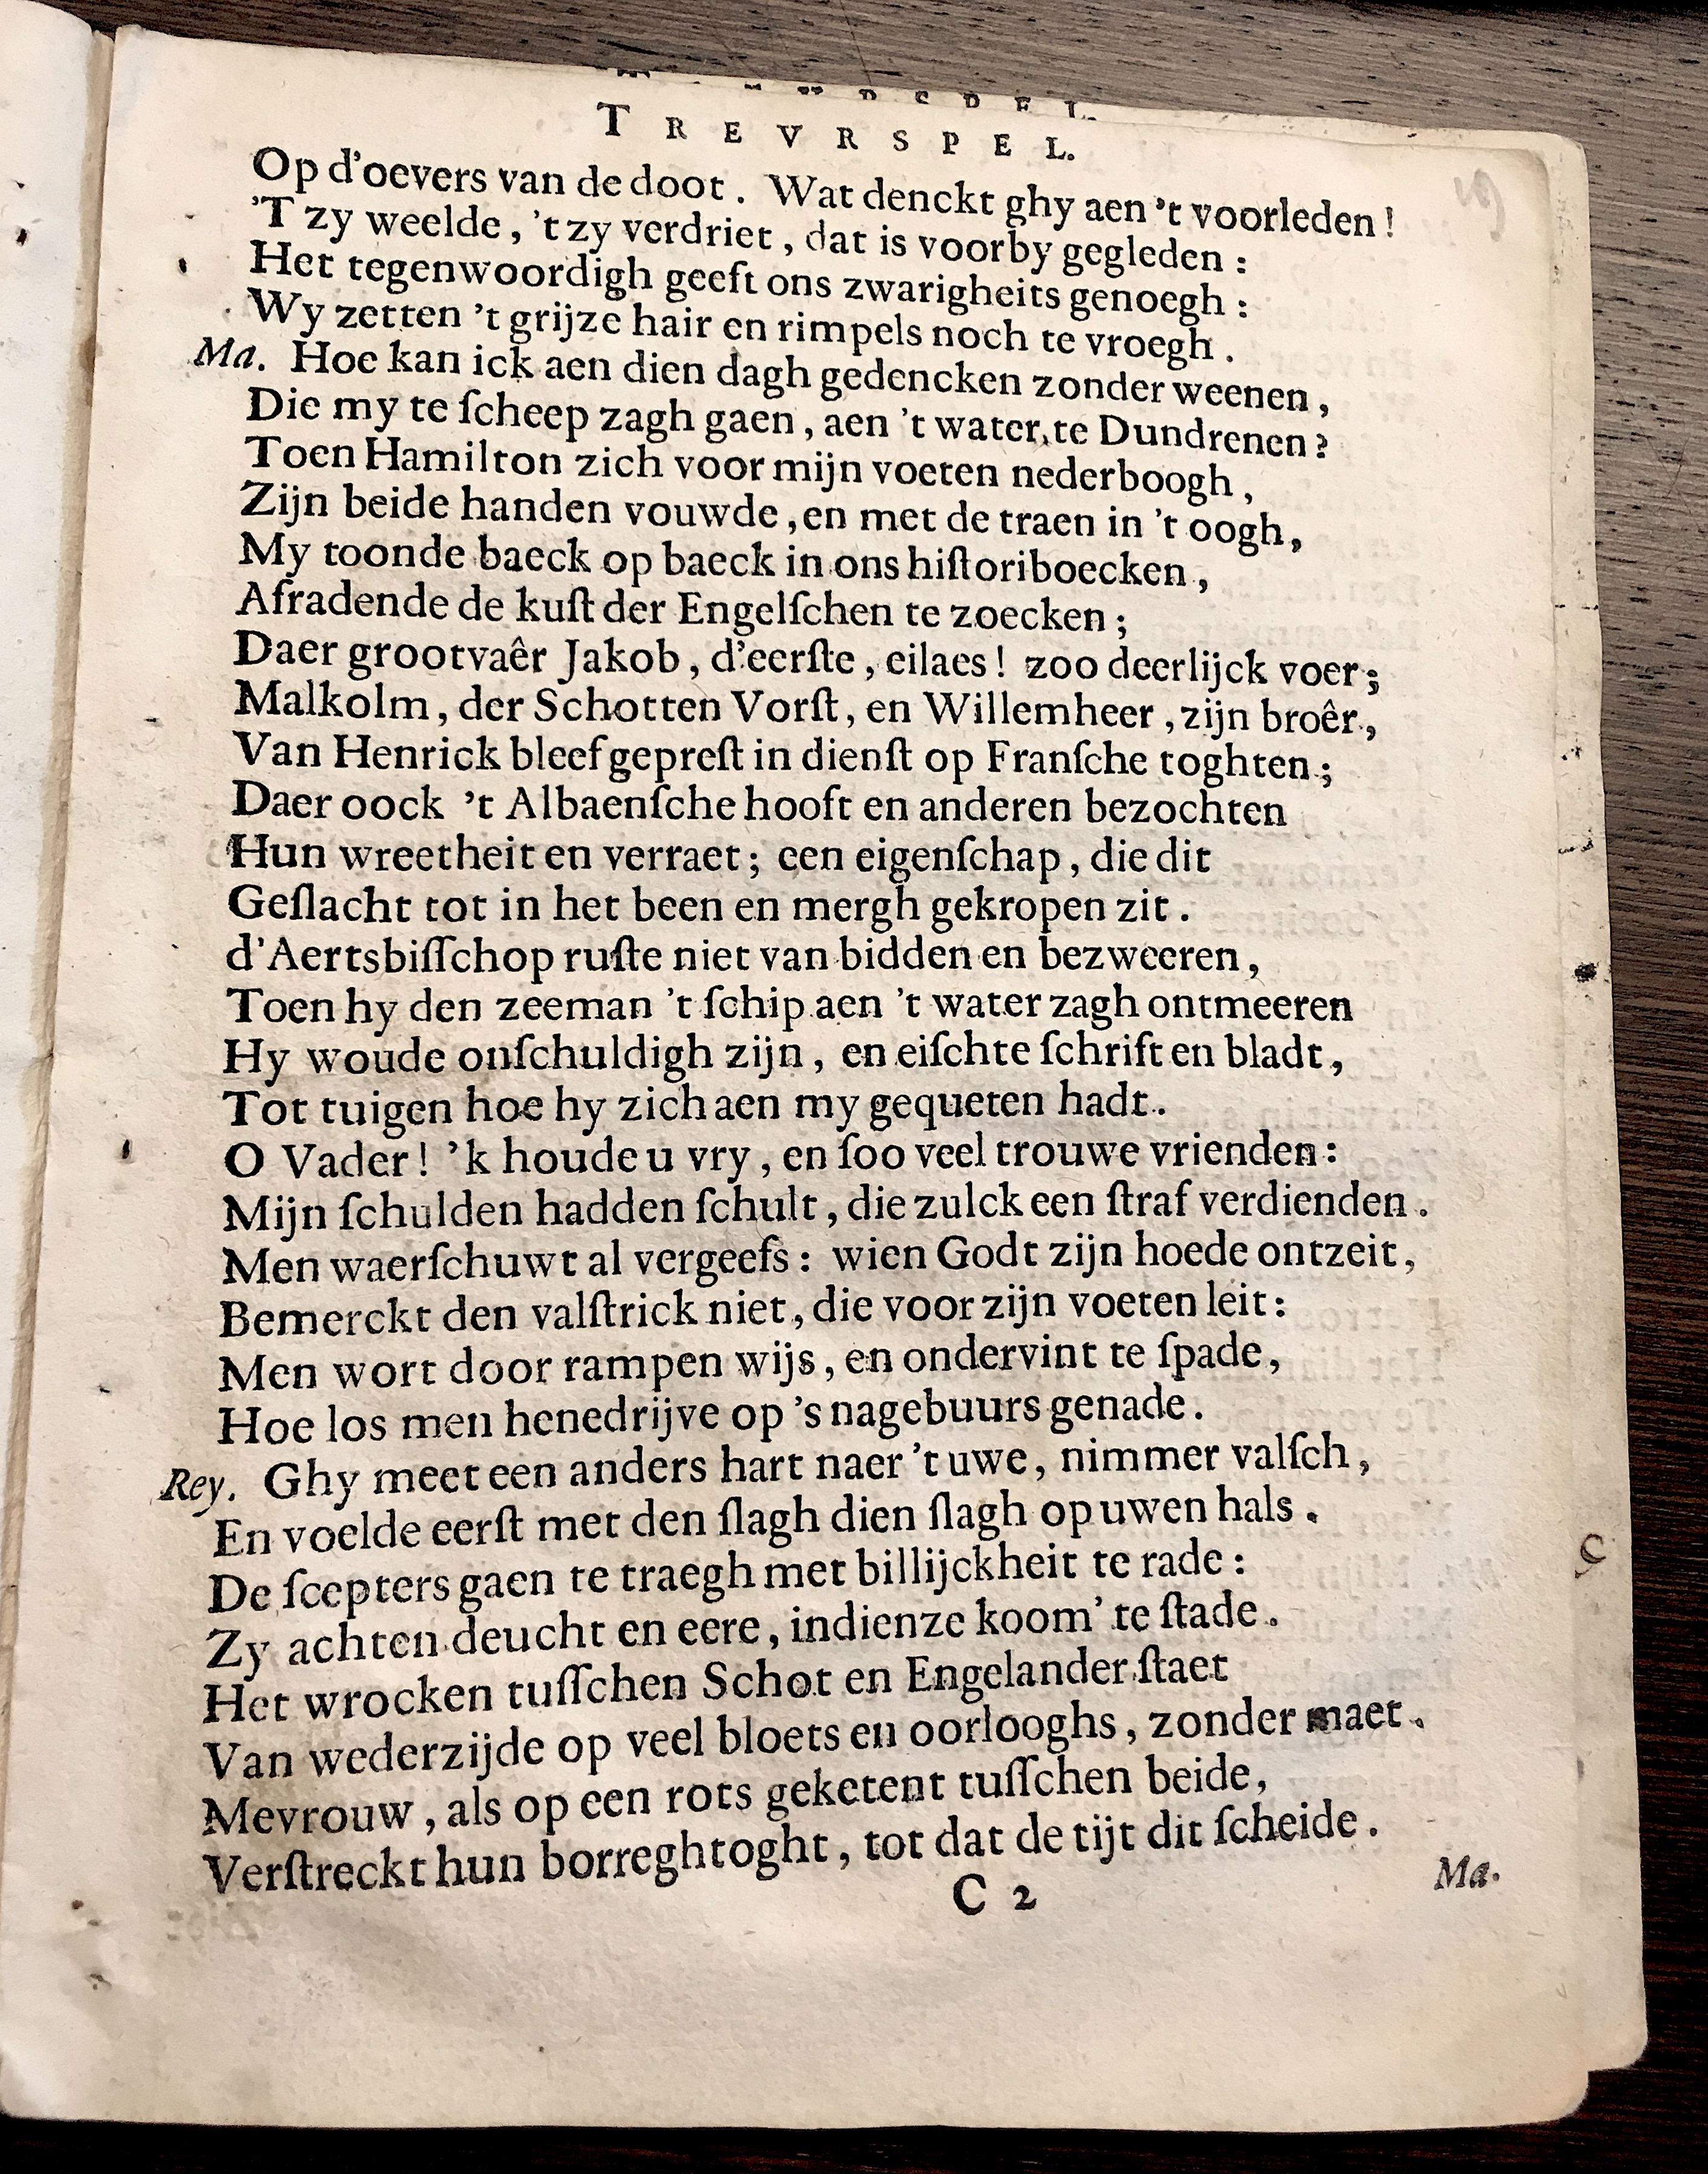 TREVRSPEL.
Op d'oevers van de doot. Wat denckt ghy aen 't voorleden!
'T zy weelde, 't zy verdriet, dat is voorby gegleden:
Het tegenwoordigh geeft ons zwarigheits genoegh:
Wy zetten 't grijze hair en rimpels noch te vroegh.
Ma. Hoe kan ick aen dien dagh gedencken zonder weenen,
Die my te ſcheep zagh gaen, aen 't water te Dundrenen?
Toen Hamilton zich voor mijn voeten nederboogh,
Zijn beide handen vouwde, en met de traen in 't oogh,
My toonde baeck op baeck in ons hiſtoriboecken,
Afradende de kuſt der Engelſchen te zoecken;
Daer grootvaêr Jakob, d'eerſte, eilaes! zoo deerlijck voer;
Malkolm, der Schotten Vorſt, en Willemheer, zijn broêr,
Van Henrick bleef gepreſt in dienſt op Franſche toghten;
Daer oock 't Albaenſche hooft en anderen bezochten
Hun wreetheit en verraet; een eigenſchap, die dit
Geſlacht tot in het been en mergh gekropen zit.
d'Aertsbiſſchop ruſte niet van bidden en bezweeren,
Toen hy den zeeman 't ſchip aen 't water zagh ontmeeren
Hy woude onſchuldigh zijn, en eiſchte ſchrift en bladt,
Tot tuigen hoe hy zich aen my gequeten hadt.
O Vader! 'k houde u vry, en ſoo veel trouwe vrienden:
Mijn ſchulden hadden ſchult, die zulck een ſtraf verdienden.
Men waerſchuwt al vergeefs: wien Godt zijn hoede ontzeit,
Bemerckt den valſtrick niet, die voor zijn voeten leit:
Men wort door rampen wijs, en ondervint te ſpade,
Hoe los men henedrijve op 's nagebuurs genade.
Rey. Ghy meet een anders hart naer 't uwe, nimmer valſch,
En voelde eerſt met den ſlagh dien ſlagh op uwen hals.
De ſcepters gaen te traegh met billijckheit te rade:
Zy achten deucht en eere, indienze koom' te ſtade.
Het wrocken tuſſchen Schot en Engelander ſtaet
Van wederzijde op veel bloets en oorlooghs, zonder maet.
Mevrouw, als op een rots geketent tuſſchen beide,
Verſtreckt hun borreghtoght, tot dat de tijt dit ſcheide.
C 2
Ma.